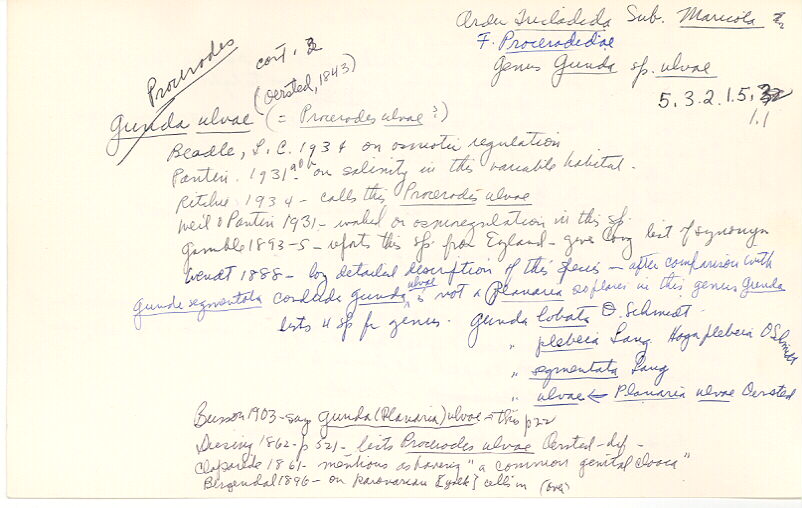 Order Tricladida Sub. Maricola
F. Procerodidae
Genus Gunda sp. ulvae
5.3.2.1.5.
1.1
Procerodes cont. 2
(Oersted, 1843)
Gunda ulvae (= Procerodes ulvae?)
Beadle, L.C. 1934 on osmotic regulation
Pantin. 1931 a & b on salinity in this variable habitat.
Ritchie 1934 - calls this Procerodes ulvae
Weil & Pantin 1931 - worked on osmoregulation in this sp.
Gamble 1893-5 - reports this sp. from England - gives long list of synonyn
Wendt 1888 - long detailed description of this species - after comparison with
Gunda segmentata conclude Gunda ulvae is not a Planaria so places in this genus Gunda
lists 4 sp for genus. Gunda lobata O. Schmidt.
" plebeia Lang Haga plebeia O Schmidt
" segmentata Lang
" ulvae ← Planaria ulvae Oersted
1903 - say Gunda (Planaria) ulvae = this p 22
Diesing 1862 - p 521 - lists Procerodes ulvae Oersted - def -
Claparede 1861 - mentions as having "a common genital cloaca"
Bergendal 1896 - on parovarian cells in (over)